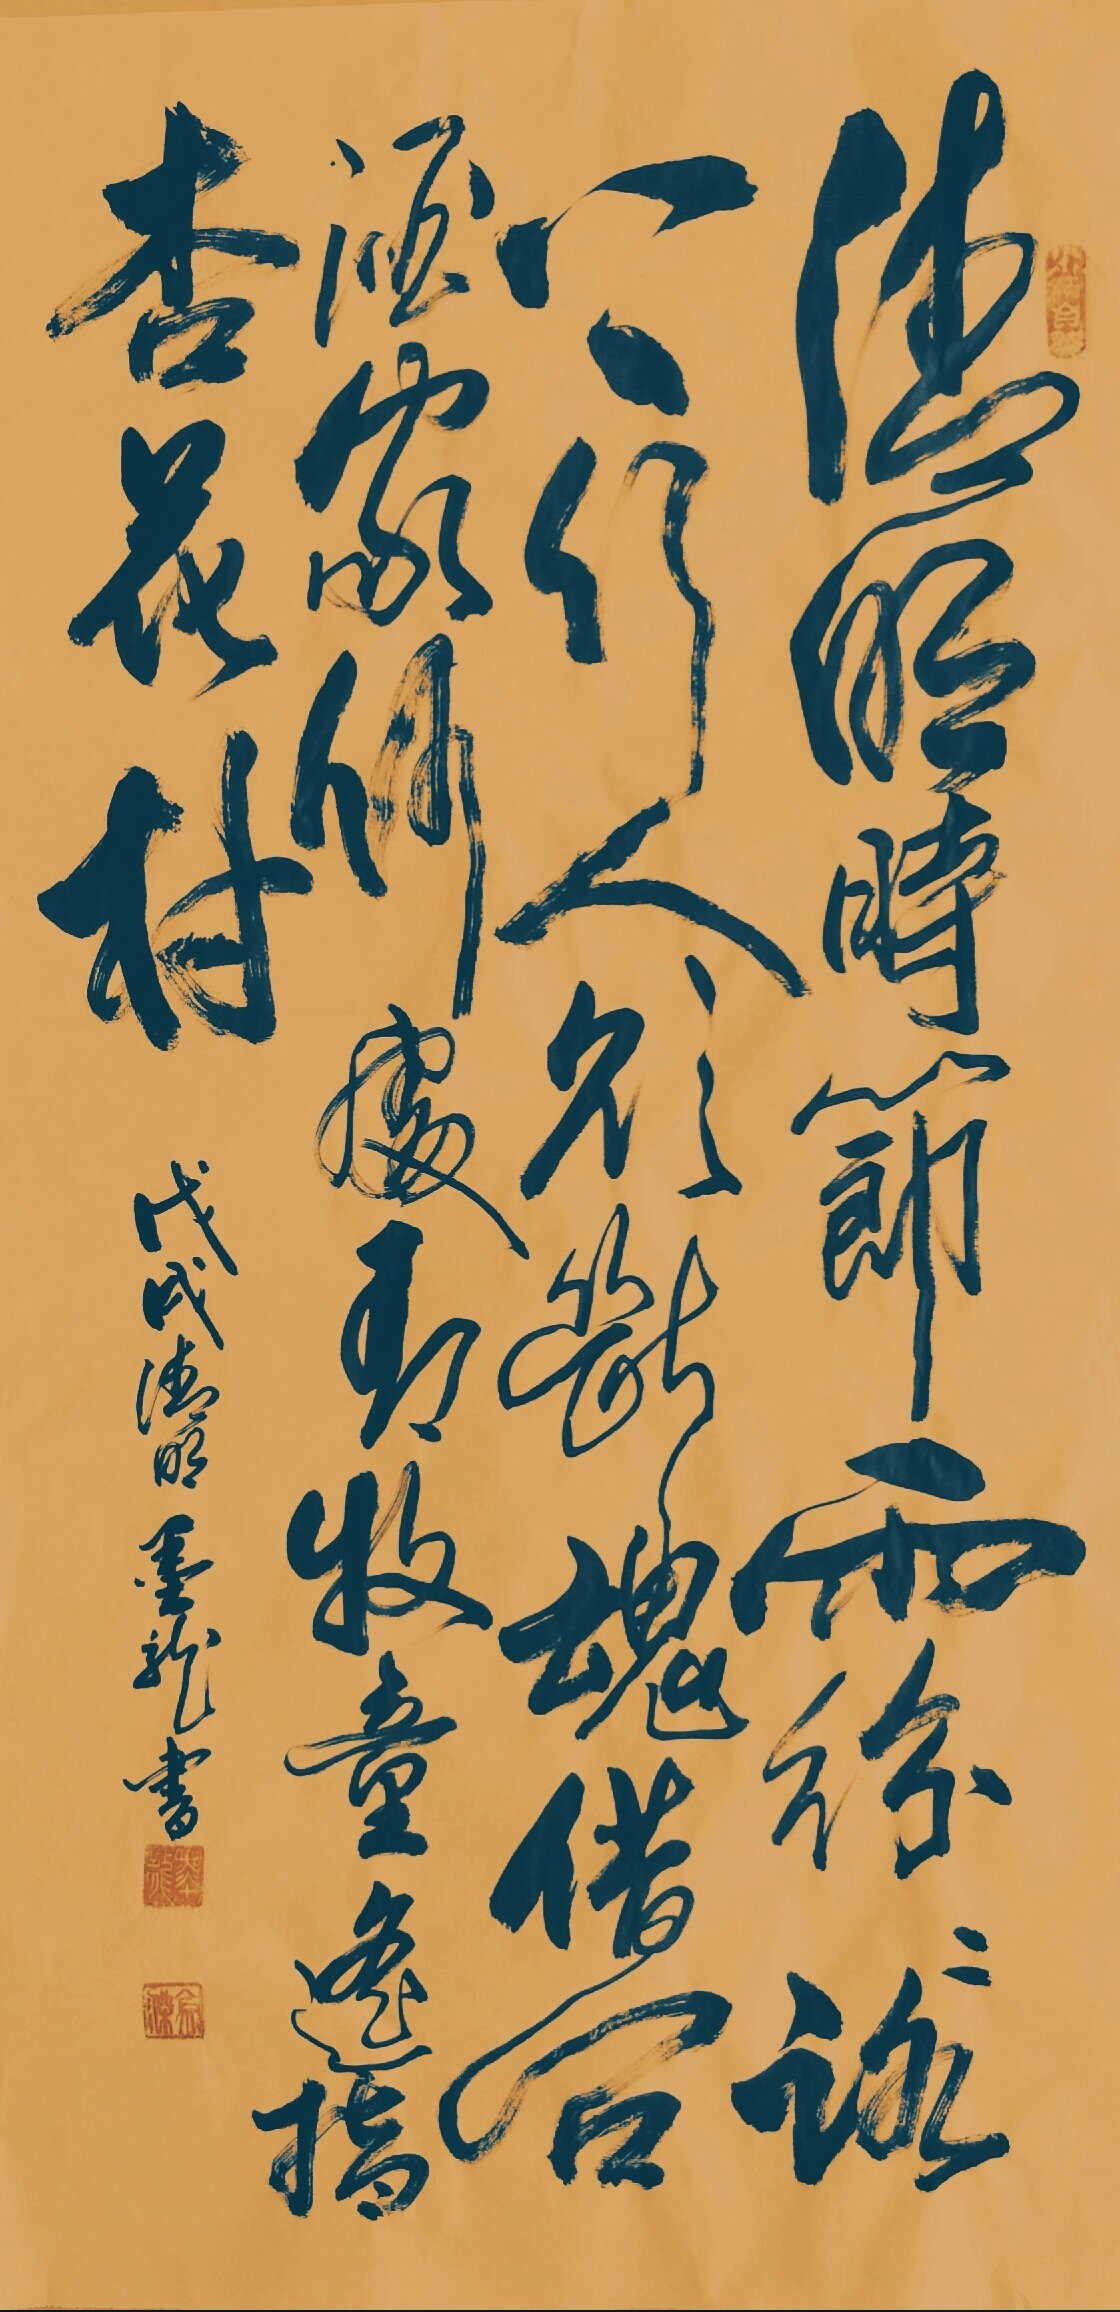 清明時節雨紛〻路
上行人欲斷魂借問
酒家何處有牧童遙指
杏花村
戊戌清明墨龍書